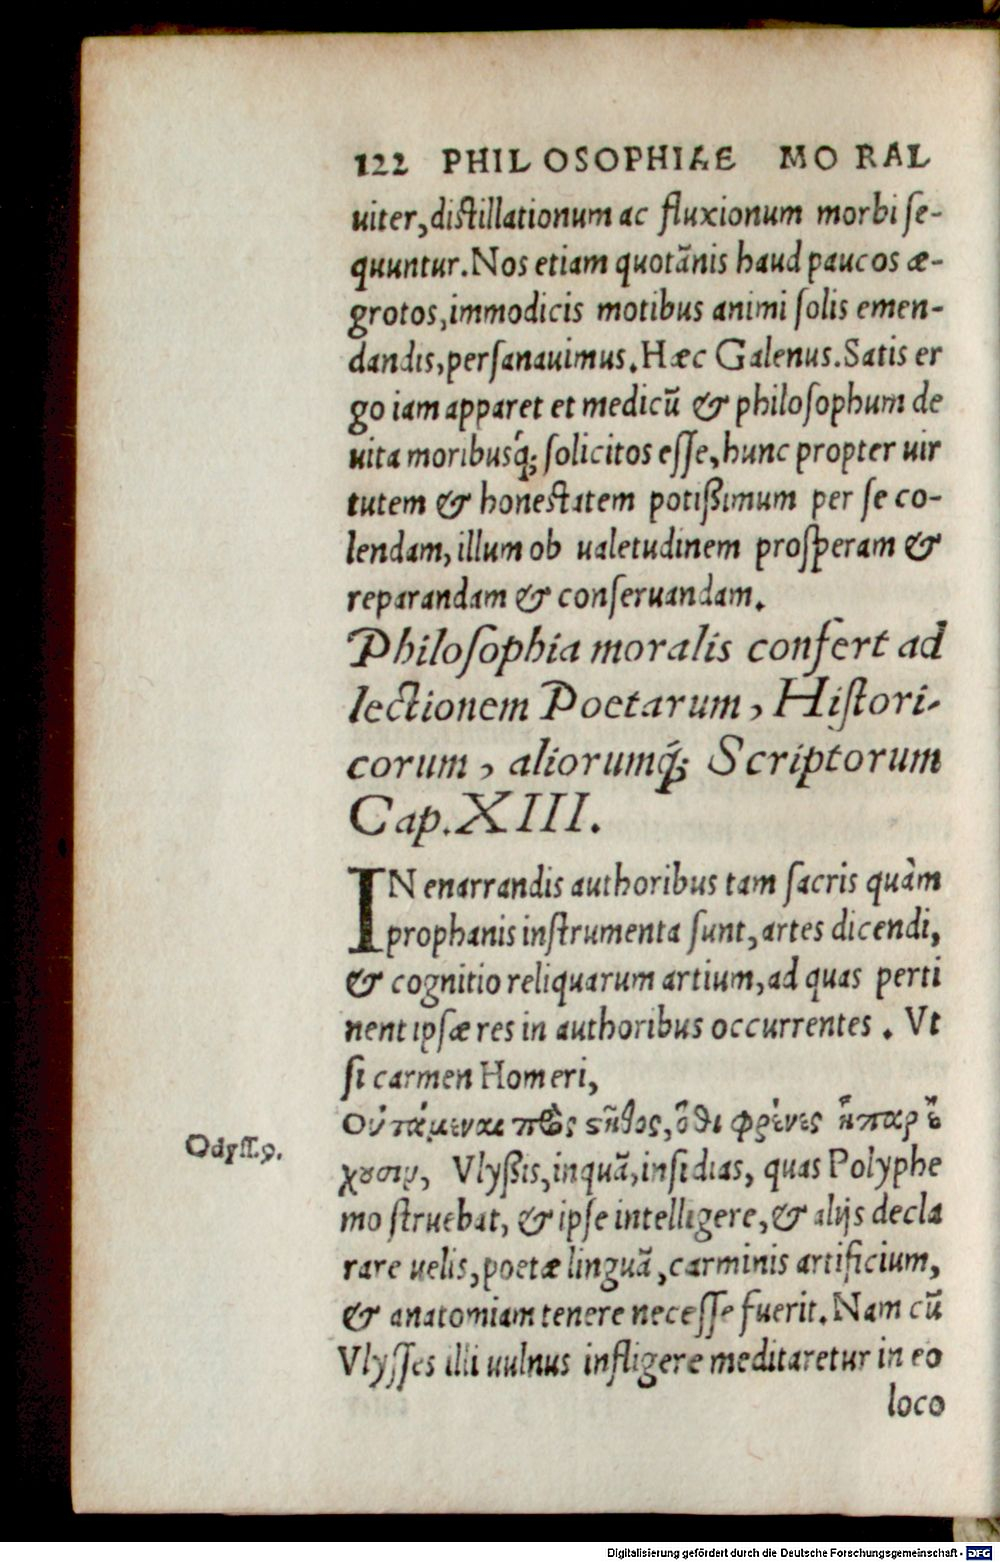 122 PHILOSOPHIAE MORAL
uiter, distillationum ac fluxionum morbi se-
quuntur. Nos etiam quotãnis haud paucos æ-
grotos, immodicis motibus animi solis emen-
dandis, persanauimus. Hæc Galenus. Satis er
go iam apparet et medicũ & philosophum de
uita moribusq́; solicitos esse, hunc propter uir
tutem & honestatem potißimum per se co-
lendam, illum ob ualetudinem prosperam &
reparandam & conseruandam.
Philosophia moralis confert ad
lectionem Poetarum, Histori-
corum, aliorumq́; Scriptorum
Cap. XIII.
IN enarrandis authoribus tam sacris quàm
prophanis instrumenta sunt, artes dicendi,
& cognitio reliquarum artium, ad quas perti
nent ipsæ res in authoribus occurrentes. Vt
si carmen Homeri,
Οὐτάμεναι πρὸς στῆθος, ὅθι φρένες ἧπαρ ἔ
Odyss.9.
χουσιν, Vlyßis, inquã, insidias, quas Polyphe
mo struebat, & ipse intelligere, & alijs decla
rare uelis, poetæ linguã, carminis artificium,
& anatomiam tenere necesse fuerit. Nam cũ
Vlysses illi uulnus infligere meditaretur in eo
loco
Digitalisierung gefördert durch die Deutsche Forschungsgemeinschaft - DFG